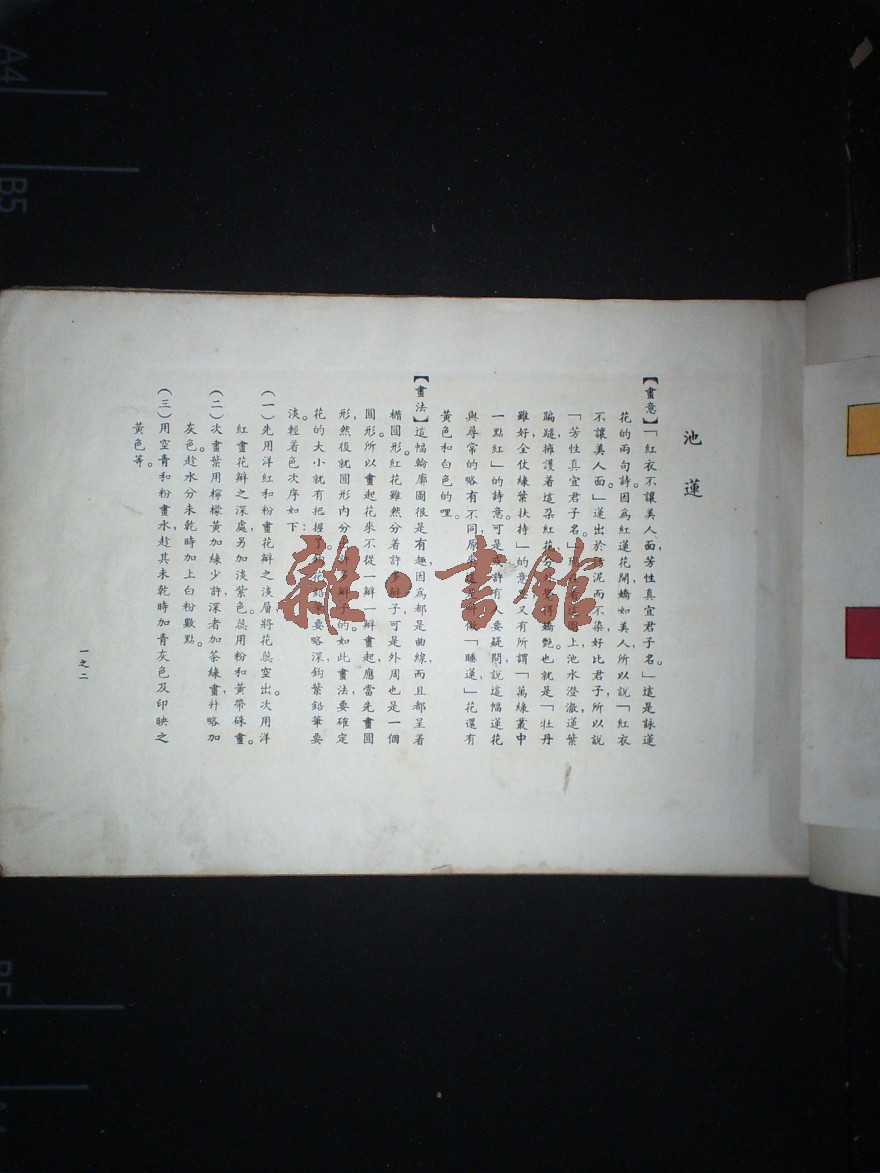 池蓮
【畫意】「紅衣不讓美人面，芳性真宜君子名。」這是詠蓮
花的兩句詩。因為紅蓮花開，嬌如美人，所以說「紅衣
不讓美人面。」蓮出於污泥而不染，好比君子，所以說
「芳性真宜君子名。」上池水澄澈，蓮葉
蹁躚，擁護着這朶紅花，嬌艷。也就是「牡丹
雖好，全仗綠葉扶持」的意。又有所謂「萬綠叢中
一點紅」的詩意。可是或許有人要疑問，說這幅蓮花
與尋常的略有不同。原「睡蓮，」花還有
黃色和白色的哩。
【畫法】這幅輪廓圖很是有趣，因為都是曲線，而且都呈着
橢圓形。紅花雖然分着許多辦子，可是外周也是一個
圓形。所以畫起花來，不從一辦一辦畫起，應當先畫圓
形，然後就圓形內分許多辦子的。如此畫法，要確定
花的大小，就有把握了。花鉛筆要略深，鈎葉鉛筆要
淡。輕着色次序如下：
（一）先用洋紅和粉畫花辦之淡層，將花蕊空出。次用洋
紅畫花辦之深處，另加淡紫色。蕊用粉和黃帶硃畫。
（二）次畫葉，用檸檬黃加綠少許，深者加茶綠畫，幷略加
灰色。趁水分未乾時，加上白粉數點。
（三）用空青和粉畫水，趁其未乾時，加青灰色及印映之
黃色等。
一之二
雜·書館
A4
B5